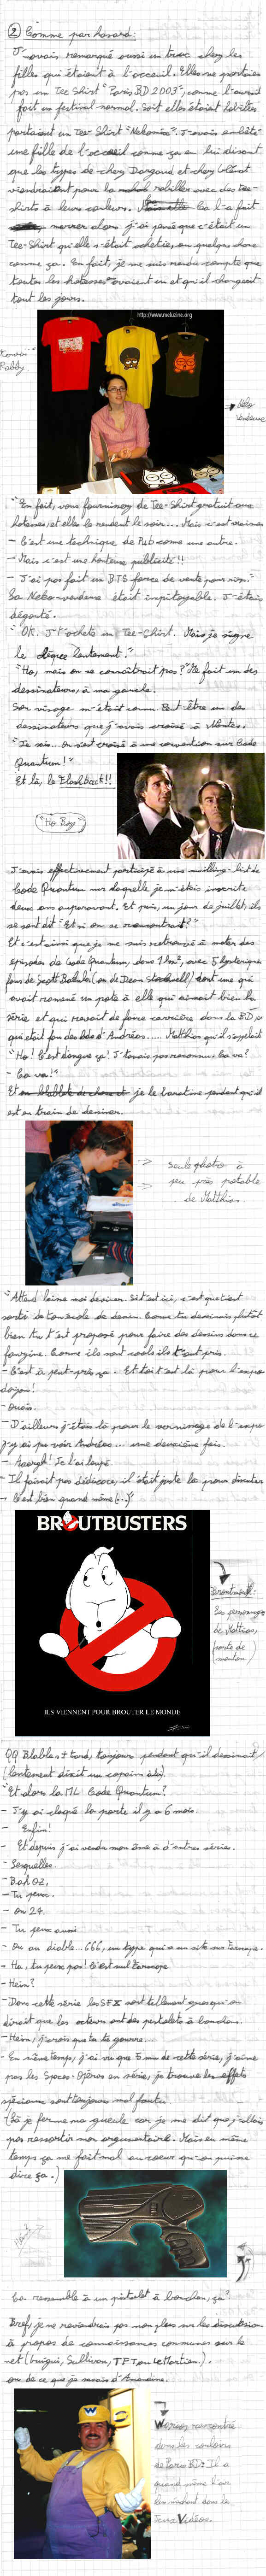 ② Comme par hasard:
J'avais remarqué aussi un truc chez les
filles qui étaient à l'accueil. Elles ne portaient
pas un Tee Shirt "Paris BD 2003", comme l'aurait
fait un festival normal. Soit elles étaient habillées
portaient un Tee-Shirt "Nekomix". J'avais embêté
une fille de l'accueil comme ça en lui disant
que les types de chez Dargaud et chez Glénat
viendraient pour la habiller avec des tee-
shirts à leurs couleurs. ça l'a fait
marrer alors j'ai pensé que c'était un
Tee-Shirt qu'elle s'était achetée, ou quelque chose
comme ça. En fait, je me suis rendu compte que
toutes les hôtesses avaient un et qu'il changeait
tout les jours.
http://www.meluzine.org
Neko
vendeuse
"En fait, vous fournissez de Tee-Shirt gratuit aux
hôtesses, et elles le rendent le soir... Mais c'est vraiment
- C'est une technique de Pub comme une autre.
- Mais c'est une honteuse publicité!!
- J'ai pas fait un BTS force de vente pour rien."
La Neko-vendeuse était impitoyable. J'étais
dégouté.
"OK. J't'achète un Tee-Shirt. Mais je signe
le chèque lentement."
"Ho, mais on se connaîtrait pas?" Me fait un des
dessinateurs, à ma gauche.
Son visage m'était connu. Peut-être un des
dessinateurs que j'avais croisé à Nantes.
"Je sais... On s'est croisé à une convention sur Code
Quantum!"
Et là, le Flashback!!
"Ho Boy"
J'avais effectivement participé à une mailling-list de
Code Quantum sur laquelle je m'étais inscrite
deux ans auparavant. Et puis, un jour de juillet, ils
se sont dit "Et si on se rencontrait?"
Et c'est ainsi que je me suis retrouvé à mater des
épisodes de Code Quantum, dans 1 1m², avec 5 hystériques
fans de Scott Bakula (ou de Dean Stockwell) dont une qui
avait ramené un pote à elle qui aimait bien la
série et qui rêvait de faire carrière dans la BD, et
qui était fan des bds d'Andréas..... Matthias qu'il s'appelait
"Ho! C'est dingue ça! J't'avais pas reconnu. Ca va?
- Ca va!"
Et je le baratine pendant qu'il
est en train de dessiner.
→ seule photo à
→ peu près potable
de Matthias.
"Attend laisse moi deviner. Si t'est ici, c'est que t'est
sorti de ton école de dessin. Comme tu dessinais plutôt
bien tu t'est proposé pour faire des dessins dans ce
fanzine. Comme ils sont cools ils t'ont pris.
- C'est à peu-près ça. Et toi t'est là pour l'expo
- Ouais.
- D'ailleurs j'étais là pour le vernissage de l'expo
j'y ai pu voir Andréas... une deuxième fois.
- Aaargh! Je l'ai loupé.
- Il faisait pas dédicace, il était juste là pour discuter
- C'est bien quand même (...)"
BROUTBUSTERS
ILS VIENNENT POUR BROUTER LE MONDE
personnages
de Matthias,
mouton
QQ Blablas + tard, toujours pendant qu'il dessinait
(lentement dixit un copain à lui)
"Et alors la ML Code Quantum?
- J'y ai claqué la porte il y a 6 mois.
- Enfin!
- Et depuis j'ai vendu mon âme à d'autres séries.
- Lesquelles.
- Bah OZ,
- Tu peux.
- Ou 24.
- Tu peux aussi
- Ou au diable... 666, un type qui a un site sur Farscape.
- Ha, tu peux pas! C'est nul Farscape
- Hein?
- Dans cette série les SFX sont tellement qu'on
dirait que les acteurs ont des pistolets à bouchon.
- Hein, j'crois que tu te goures...
- En même temps, j'ai vu que 5 mn de cette série, j'aime
pas les Space-Opéras en séries, je trouve les effets
spéciaux sont toujours mal foutu.
(Là je ferme ma gueule car je me dit que j'allais
pas ressortir mon argumentaire. Mais en même
temps ça me fait mal au coeur qu'on puisse
dire ça.)
Ca ressemble à un pistolet à bouchon, ça?
Bref, je ne reviendrais pas non plus sur les discussions
à propos de connaissances communes sur le
net (Guigui, Sullivan, TPT ou Le Martien).
ou de ce que je savais d'Amandine.
Wario, rencontré
dans les couloirs
de Paris BD: Il a
quand même l'air
méchant dans les
Jeux Vidéos.